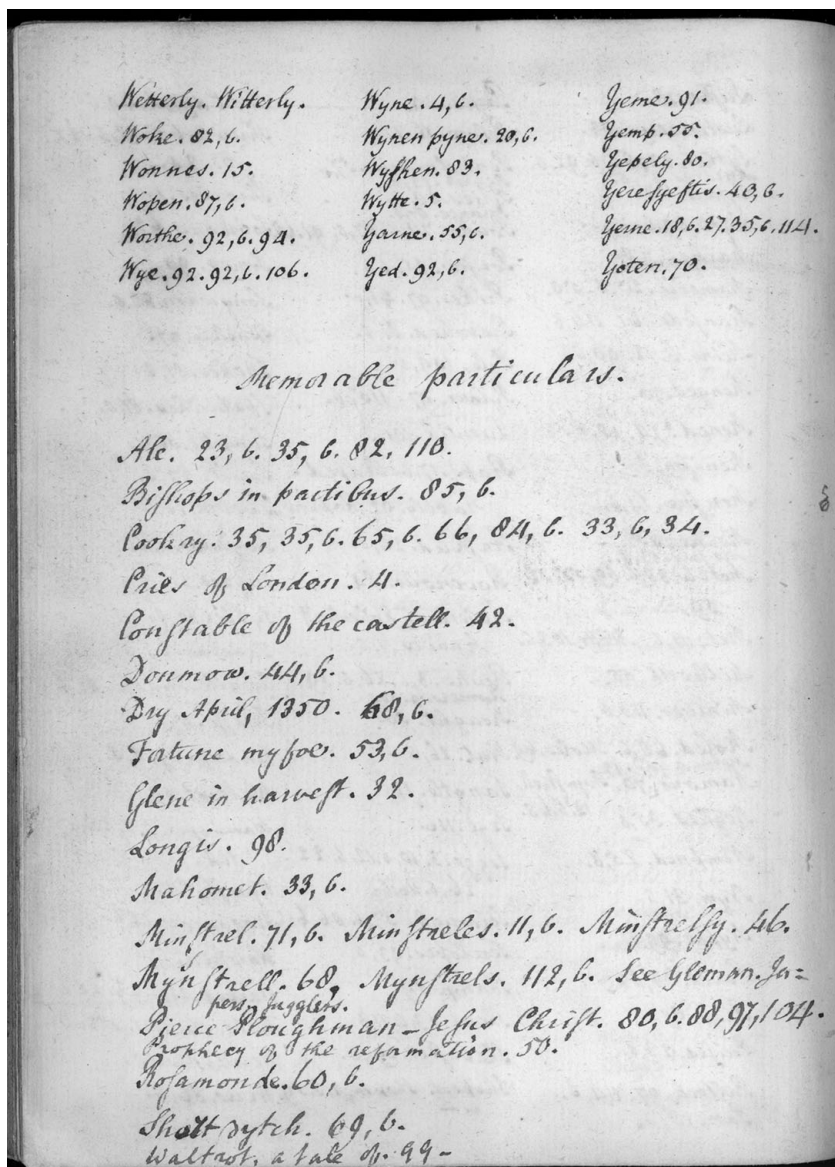 Wetterly. Witterly.
Woke. 82, b.
Wonnes. 15.
Wopen. 87, b.
Worthe. 92, b. 94.
Wye. 92. 92, b. 106.
Wyne. 4, b.
Wynen pyne. 20, b.
Wyſhen. 83.
Wytte. 5.
Yarne. 55, b.
Yed. 92, b.
Yeme. 91.
Yemp. 55.
Yepely. 80.
Yereſyeftis. 40, b.
Yerne. 18, b. 27. 35, b. 114.
Yoten. 70.
Memorable particulars.
Ale. 23, b. 35, b. 82, 110.
Biſhops in partibus. 85, b.
Cookry. 35, 35, b. 65, b. 66, 84, b. 33, b, 34.
Cries of London. 4.
Conſtable of the castell. 42.
Donmow. 44, b.
Dry April, 1350. 68, b.
Fortune my foe. 53, b.
Glene in harveſt. 32.
Longis. 98.
Mahomet. 33, b.
Minſtrel. 71, b. Minſtreles. 11, b. Minſtrelſy. 46.
Mynſtrell. 68, Mynſtrels. 112, b. See Gleman. Ja=
pers. Jugglers.
Pierce Ploughman – Jeſus Chriſt. 80, b. 88, 97, 104.
Prophecy of the reformation. 50.
Roſamonde. 60, b.
Shottdytch. 69, b.
Waltrot, a tale of. 99 –